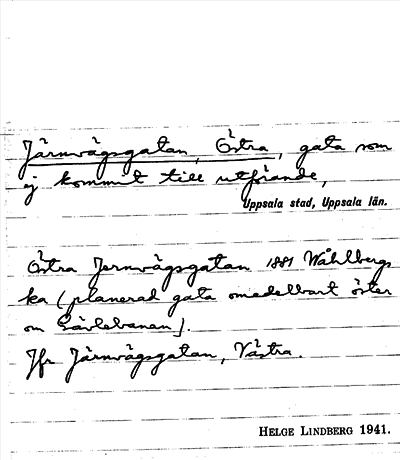 Järnvägsgatan, Östra, gata som
ej kommit till utförande,
Uppsala stad, Uppsala län.
Östra Jernvägsgatan 1881 Wåhlbergs
ka (planerad gata omedelbart öster
om Gävlebanan).
Jfr Järnvägsgatan, Västra.
HELGE LINDBERG 1941.